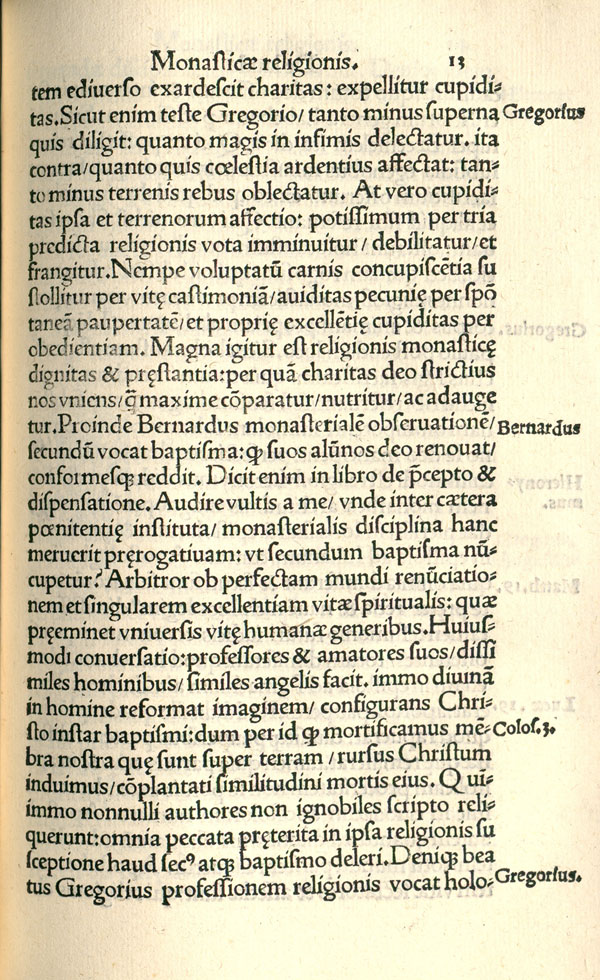 Monasticæ religionis. 13
tem ediuerso exardescit charitas: expellitur cupidi⸗
tas. Sicut enim teste Gregorio/ tanto minus superna Gregorius
quis diligit: quanto magis in infimis delectatur. ita
contra/quanto quis cœlestia ardentius affectat: tan⸗
to minus terrenis rebus oblectatur. At vero cupidi⸗
tas ipsa et terrenorum affectio: potissimum per tria
predicta religionis vota imminuitur / debilitatur/et
frangitur. Nempe voluptatū carnis concupiscētia su
stollitur per vitę castimoniā/auiditas pecunię per spō
taneā paupertatē/et proprię excellētię cupiditas per
obedientiam. Magna igitur est religionis monasticę
dignitas & pręstantia: per quā charitas deo strictius
nos vniens/q̄ maxime cōparatur/nutritur/ac adauge
tur. Proinde Bernardus monasterialē obseruationē/ Bernardus
secundū vocat baptisma: ꝙ suos alūnos deo renouat/
conformesqꝫ reddit. Dicit enim in libro de p̄cepto &
dispensatione. Audire vultis a me/ vnde inter cætera
pœnitentię instituta/ monasterialis disciplina hanc
meruerit pręrogatiuam: vt secundum baptisma nū⸗
cupetur? Arbitror ob perfectam mundi renūciatio⸗
nem et singularem excellentiam vitæ spiritualis: quæ
pręeminet vniuersis vitę humanæ generibus. Huius⸗
modi conuersatio: professores & amatores suos/dissi
miles hominibus/ similes angelis facit. immo diuinā
in homine reformat imaginem/ configurans Chri⸗
sto instar baptismi: dum per id ꝙ mortificamus mē⸗ Colos. 3.
bra nostra quę sunt super terram / rursus Christum
induimus/cōplantati similitudini mortis eius. Qui⸗
immo nonnulli authores non ignobiles scripto reli⸗
querunt: omnia peccata pręterita in ipsa religionis su
sceptione haud secꝰ atqꝫ baptismo deleri. Deniqꝫ bea
tus Gregorius professionem religionis vocat holo⸗ Gregorius.